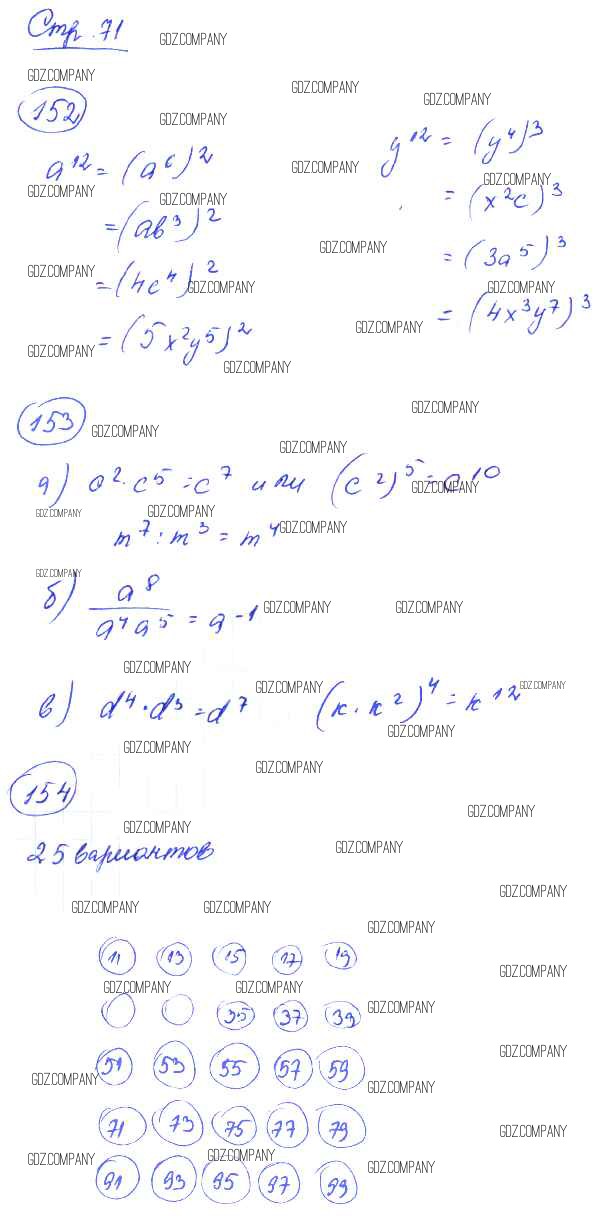 Стр. 71
152
a¹² = (a⁶)²
= (ab³)²
= (4c⁴)²
= (5x²y⁵)²
y¹² = (y⁴)³
= (x²c)³
= (3a⁵)³
= (4x³y⁷)³
153
а) c²·c⁵ = c⁷ или (c²)⁵ = c¹⁰
m⁷ : m³ = m⁴
б) a⁸ / a⁴a⁵ = a⁻¹
в) d⁴·d³ = d⁷ (к·к²)⁴ = к¹²
154
25 вариантов
11 13 15 17 19
35 37 39
51 53 55 57 59
71 73 75 77 79
91 93 95 97 99
GDZ.COMPANY